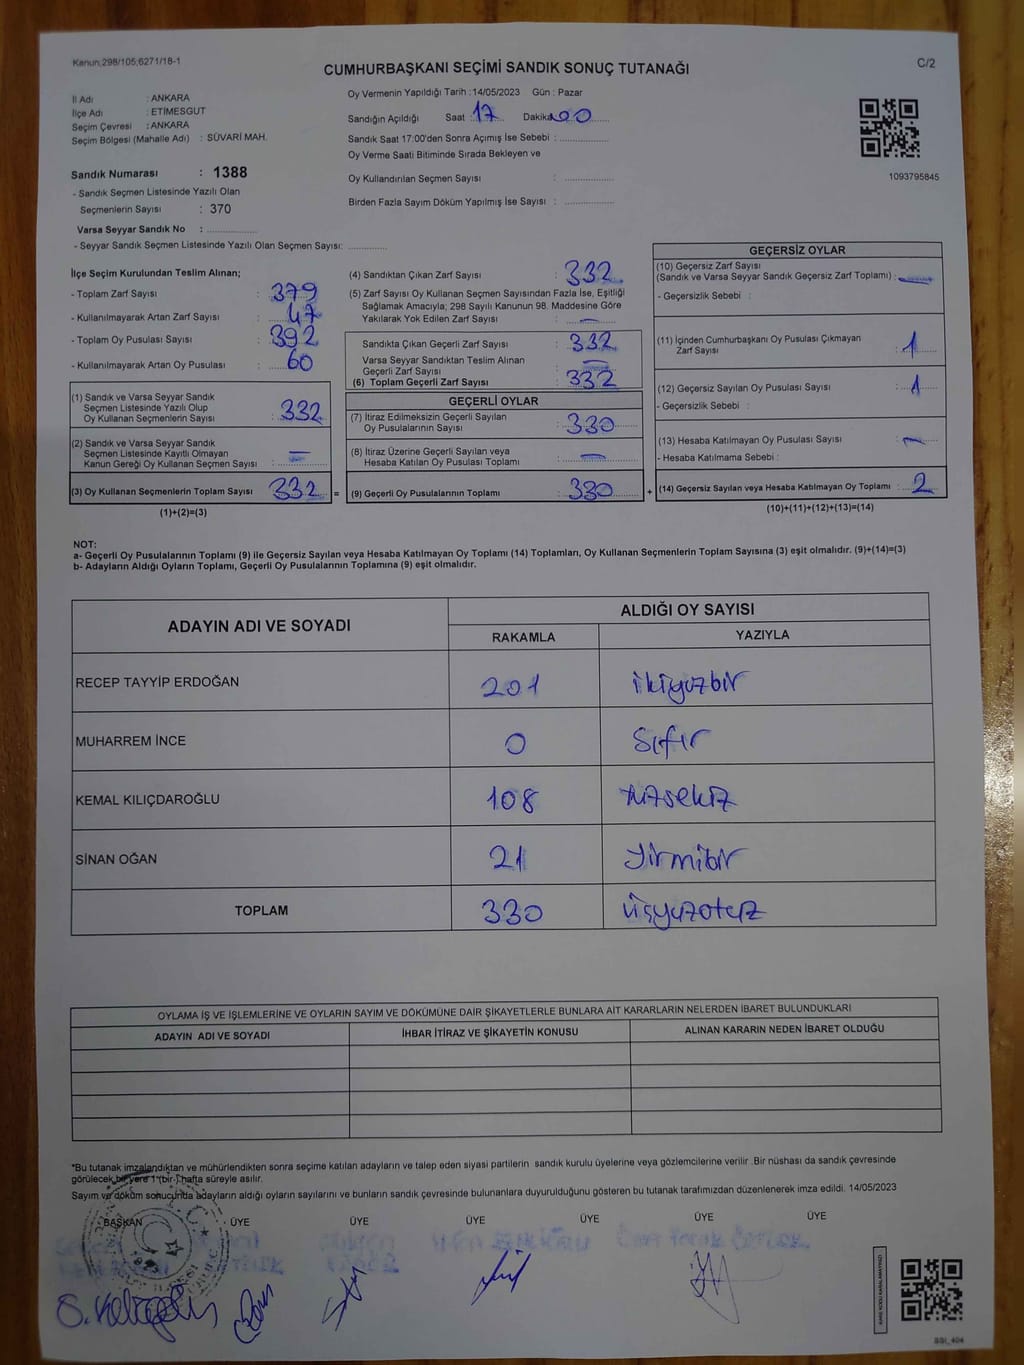 Kanun;298/105;6271/18-1
C/2
CUMHURBAŞKANI SEÇİMİ SANDIK SONUÇ TUTANAĞI
İl Adı : ANKARA
İlçe Adı : ETİMESGUT
Seçim Çevresi : ANKARA
Seçim Bölgesi (Mahalle Adı) : SÜVARİ MAH.
Sandık Numarası : 1388
- Sandık Seçmen Listesinde Yazılı Olan
Seçmenlerin Sayısı : 370
Varsa Seyyar Sandık No : ................
- Seyyar Sandık Seçmen Listesinde Yazılı Olan Seçmen Sayısı: ............
Oy Vermenin Yapıldığı Tarih :14/05/2023 Gün : Pazar
Sandığın Açıldığı Saat :17 Dakika 00
Sandık Saat 17:00'den Sonra Açımış İse Sebebi : ................
Oy Verme Saati Bitiminde Sırada Bekleyen ve
Oy Kullandırılan Seçmen Sayısı : ................
Birden Fazla Sayım Döküm Yapılmış İse Sayısı : ................
1093795845
İlçe Seçim Kurulundan Teslim Alınan;
- Toplam Zarf Sayısı : 379
- Kullanılmayarak Artan Zarf Sayısı : 47
- Toplam Oy Pusulası Sayısı : 392
- Kullanılmayarak Artan Oy Pusulası : 60
(1) Sandık ve Varsa Seyyar Sandık
Seçmen Listesinde Yazılı Olup
Oy Kullanan Seçmenlerin Sayısı : 332
(2) Sandık ve Varsa Seyyar Sandık
Seçmen Listesinde Kayıtlı Olmayan
Kanun Gereği Oy Kullanan Seçmen Sayısı : —
(3) Oy Kullanan Seçmenlerin Toplam Sayısı : 332 =
(1)+(2)=(3)
(4) Sandıktan Çıkan Zarf Sayısı : 332
(5) Zarf Sayısı Oy Kullanan Seçmen Sayısından Fazla İse, Eşitliği
Sağlamak Amacıyla; 298 Sayılı Kanunun 98. Maddesine Göre
Yakılarak Yok Edilen Zarf Sayısı : —
Sandıkta Çıkan Geçerli Zarf Sayısı : 332
Varsa Seyyar Sandıktan Teslim Alınan
Geçerli Zarf Sayısı : —
(6) Toplam Geçerli Zarf Sayısı : 332
GEÇERLİ OYLAR
(7) İtiraz Edilmeksizin Geçerli Sayılan
Oy Pusulalarının Sayısı : 330
(8) İtiraz Üzerine Geçerli Sayılan veya
Hesaba Katılan Oy Pusulası Toplamı : —
(9) Geçerli Oy Pusulalarının Toplamı : 330 +
GEÇERSİZ OYLAR
(10) Geçersiz Zarf Sayısı
(Sandık ve Varsa Seyyar Sandık Geçersiz Zarf Toplamı) : —
- Geçersizlik Sebebi :
(11) İçinden Cumhurbaşkanı Oy Pusulası Çıkmayan
Zarf Sayısı : 1
(12) Geçersiz Sayılan Oy Pusulası Sayısı : 1
- Geçersizlik Sebebi :
(13) Hesaba Katılmayan Oy Pusulası Sayısı : —
- Hesaba Katılmama Sebebi :
(14) Geçersiz Sayılan veya Hesaba Katılmayan Oy Toplamı : 2
(10)+(11)+(12)+(13)=(14)
NOT:
a- Geçerli Oy Pusulalarının Toplamı (9) ile Geçersiz Sayılan veya Hesaba Katılmayan Oy Toplamı (14) Toplamları, Oy Kullanan Seçmenlerin Toplam Sayısına (3) eşit olmalıdır. (9)+(14)=(3)
b- Adayların Aldığı Oyların Toplamı, Geçerli Oy Pusulalarının Toplamına (9) eşit olmalıdır.
ADAYIN ADI VE SOYADI
ALDIĞI OY SAYISI
RAKAMLA YAZIYLA
RECEP TAYYİP ERDOĞAN 201 ikiyüzbir
MUHARREM İNCE 0 Sıfır
KEMAL KILIÇDAROĞLU 108 yüzsekiz
SİNAN OĞAN 21 yirmibir
TOPLAM 330 üçyüzotuz
OYLAMA İŞ VE İŞLEMLERİNE VE OYLARIN SAYIM VE DÖKÜMÜNE DAİR ŞİKAYETLERLE BUNLARA AİT KARARLARIN NELERDEN İBARET BULUNDUKLARI
ADAYIN ADI VE SOYADI İHBAR İTİRAZ VE ŞİKAYETİN KONUSU ALINAN KARARIN NEDEN İBARET OLDUĞU
*Bu tutanak imzalandıktan ve mühürlendikten sonra seçime katılan adayların ve talep eden siyasi partilerin sandık kurulu üyelerine veya gözlemcilerine verilir .Bir nüshası da sandık çevresinde
görülecek bir yere 1 (bir ) hafta süreyle asılır.
Sayım ve döküm sonucunda adayların aldığı oyların sayılarını ve bunların sandık çevresinde bulunanlara duyurulduğunu gösteren bu tutanak tarafımızdan düzenlenerek imza edildi. 14/05/2023
BAŞKAN ÜYE ÜYE ÜYE ÜYE ÜYE ÜYE
KARE KODU KARALAMAYINIZ!
SSI_404